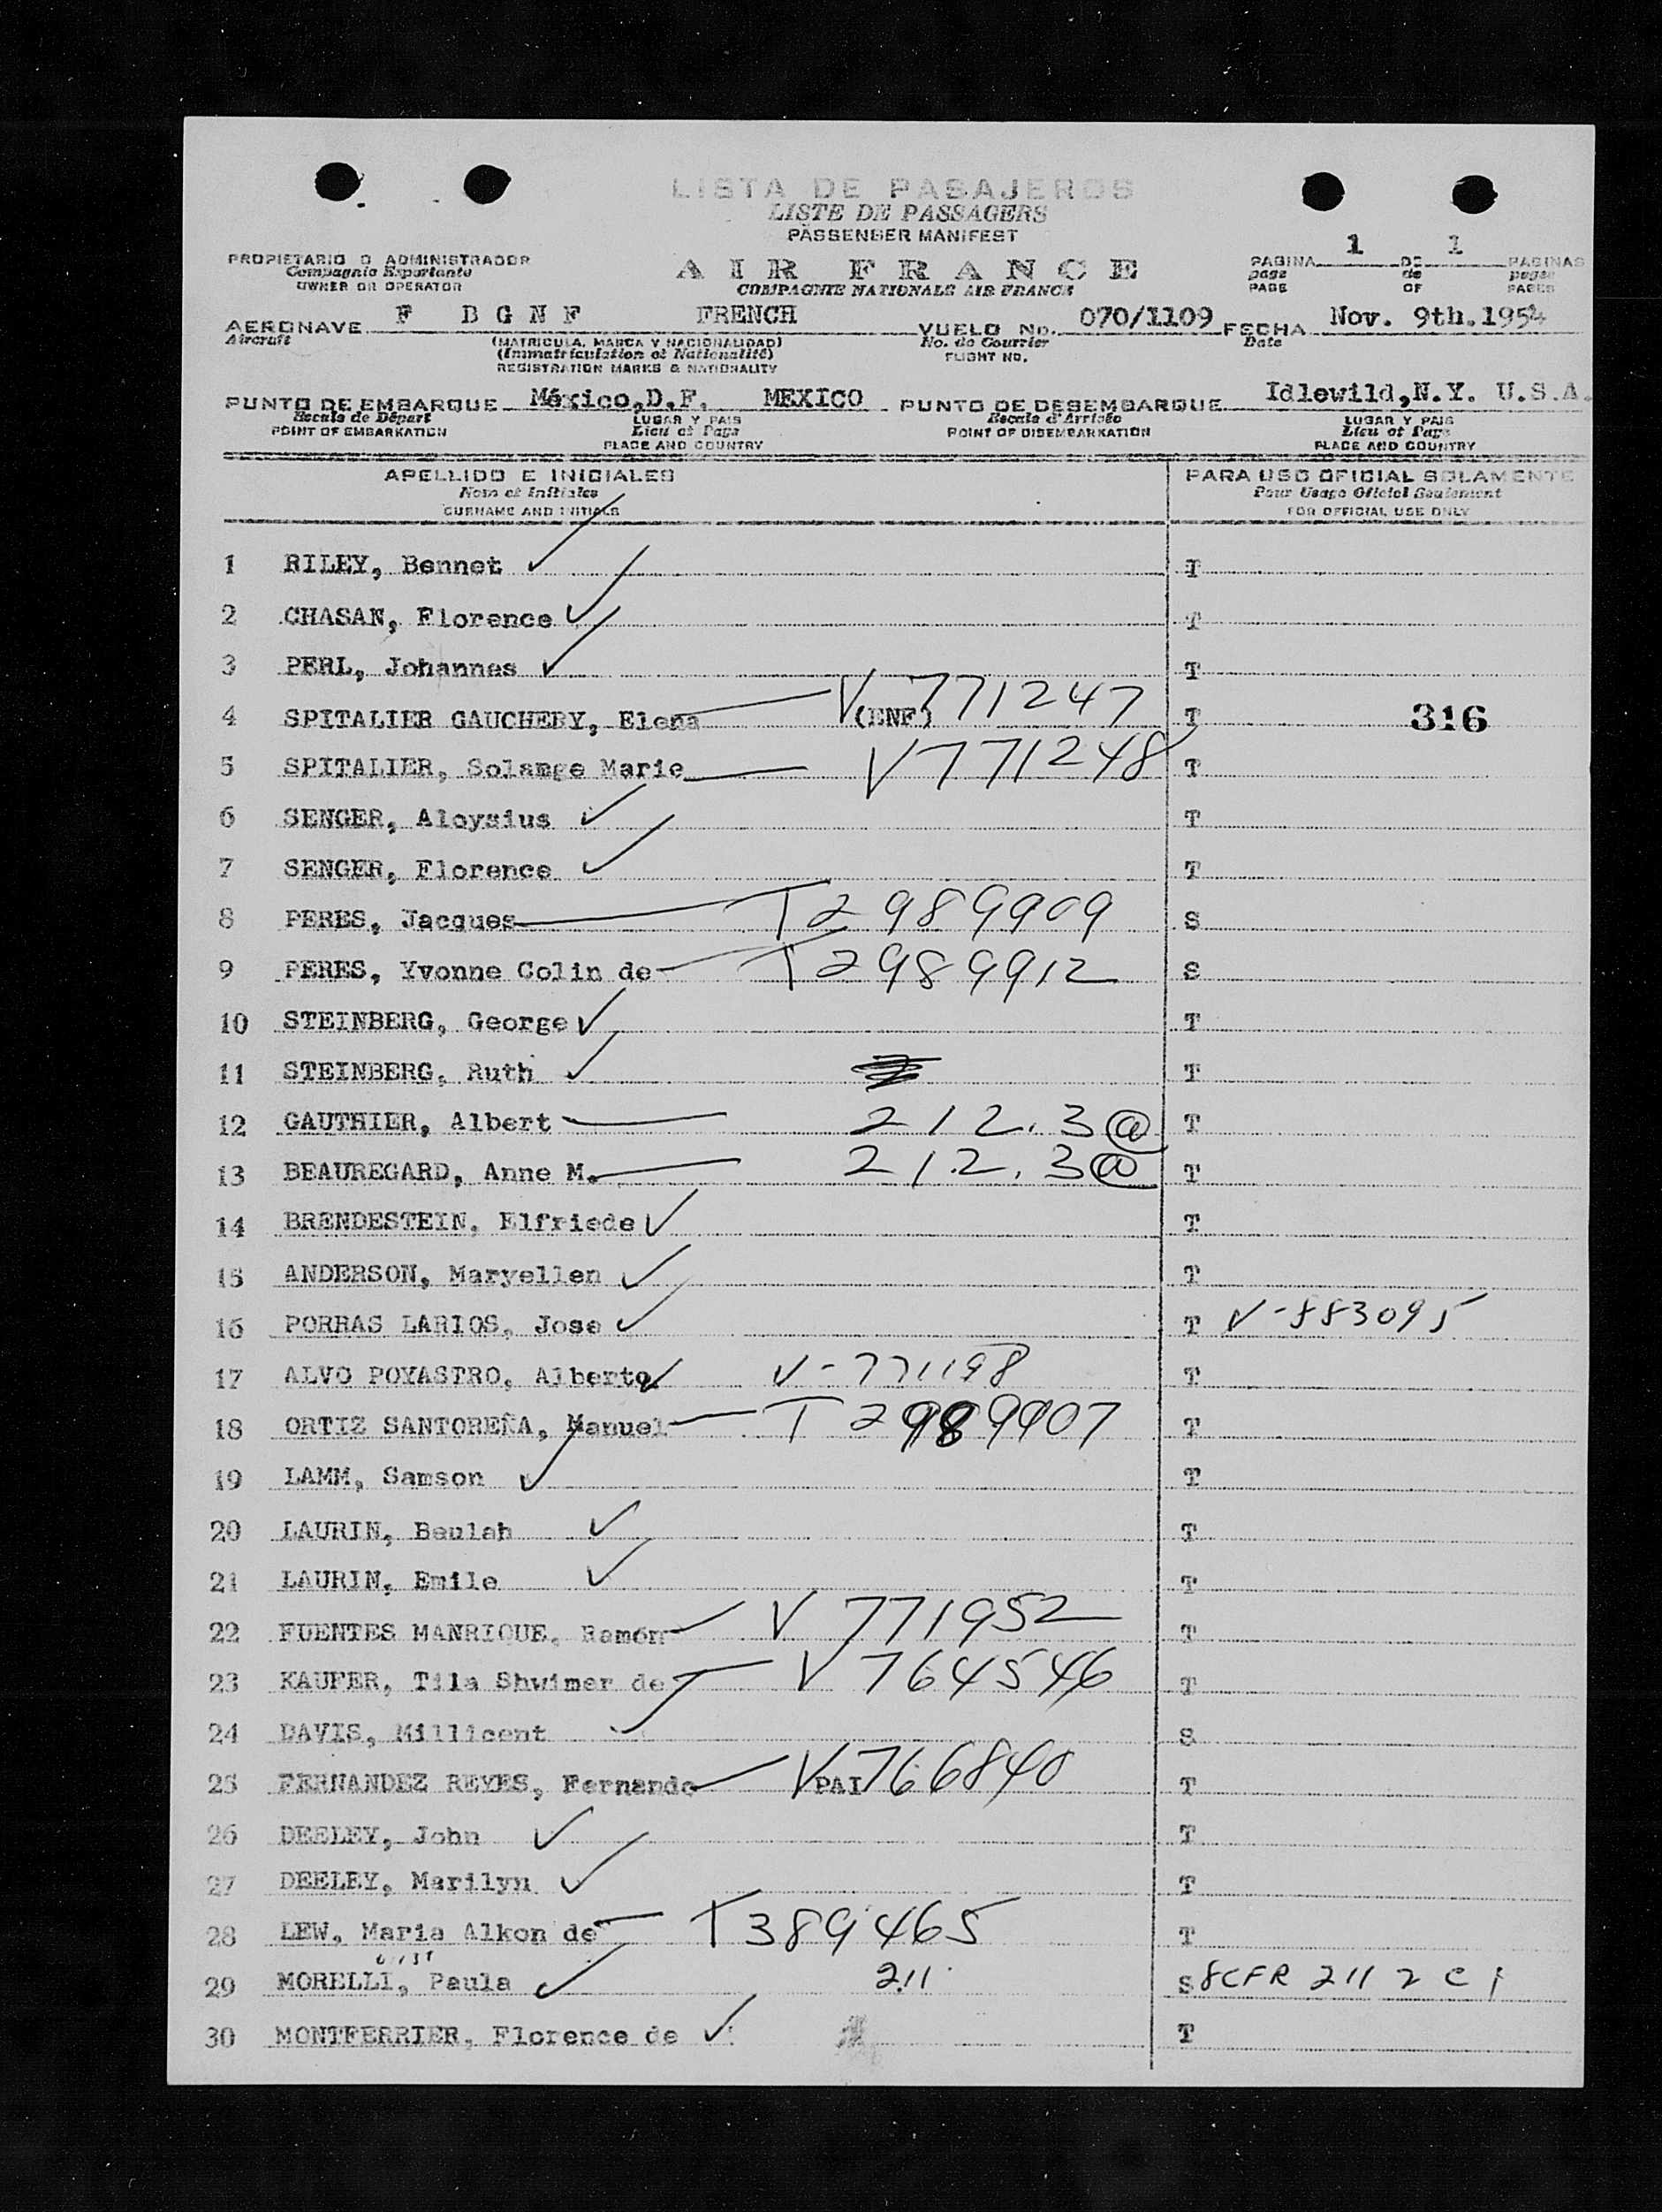 LISTA DE PASAJEROS
LISTE DE PASSAGERS
PASSENGER MANIFEST
PROPIETARIO O ADMINISTRADOR
Compagnie Exportante
OWNER OR OPERATOR
AIR FRANCE
COMPAGNIE NATIONALE AIR FRANCE
PAGINA 1 DE 1 PAGINAS
page de pages
PAGE OF PAGES
AERONAVE F BGNF FRENCH VUELO No. 070/1109 FECHA Nov. 9th.1954
Aircraft (MATRICULA, MARCA Y NACIONALIDAD) No. de Courrier Date
(Immatriculation et Nationalité) FLIGHT NO.
REGISTRATION MARKS & NATIONALITY
PUNTO DE EMBARQUE México,D.F. MEXICO PUNTO DE DESEMBARQUE Idlewild,N.Y. U.S.A.
Escale de Départ LUGAR Y PAIS Escale d'Arrivée LUGAR Y PAIS
POINT OF EMBARKATION Lieu et Pays POINT OF DISEMBARKATION Lieu et Pays
PLACE AND COUNTRY PLACE AND COUNTRY
APELLIDO E INICIALES PARA USO OFICIAL SOLAMENTE
Nom et Initiales Pour Usage Officiel Seulement
SURNAME AND INITIALS FOR OFFICIAL USE ONLY
1 RILEY, Bennet ✓ T
2 CHASAN, Florence ✓ T
3 PERL, Johannes ✓ T
4 SPITALIER GAUCHEBY, Elena (ENF) V 771247 T 316
5 SPITALIER, Solange Marie V 771248 T
6 SENGER, Aloysius ✓ T
7 SENGER, Florence ✓ T
8 PERES, Jacques T 2989909 S
9 PERES, Yvonne Colin de T 2989912 S
10 STEINBERG, George ✓ T
11 STEINBERG, Ruth ✓ T
12 GAUTHIER, Albert 212.3@ T
13 BEAUREGARD, Anne M. 212.3@ T
14 BRENDESTEIN, Elfriede ✓ T
15 ANDERSON, Maryellen ✓ T
16 PORRAS LARIOS, Jose ✓ T V-883095
17 ALVO POYASTRO, Alberto ✓ V-771198 T
18 ORTIZ SANTOREÑA, Manuel T 2989907 T
19 LAMM, Samson ✓ T
20 LAURIN, Beulah ✓ T
21 LAURIN, Emile ✓ T
22 FUENTES MANRIQUE, Ramón V 771952 T
23 KAUFER, Tila Shwimer de V 764546 T
24 DAVIS, Millicent ✓ S
25 FERNANDEZ REYES, Fernando PAI V 766840 T
26 DEELEY, John ✓ T
27 DEELEY, Marilyn ✓ T
28 LEW, Maria Alkon de T 389465 T
29 MORELLI, Paula ✓ 211 S 8CFR 211 2 C
30 MONTFERRIER, Florence de ✓ T